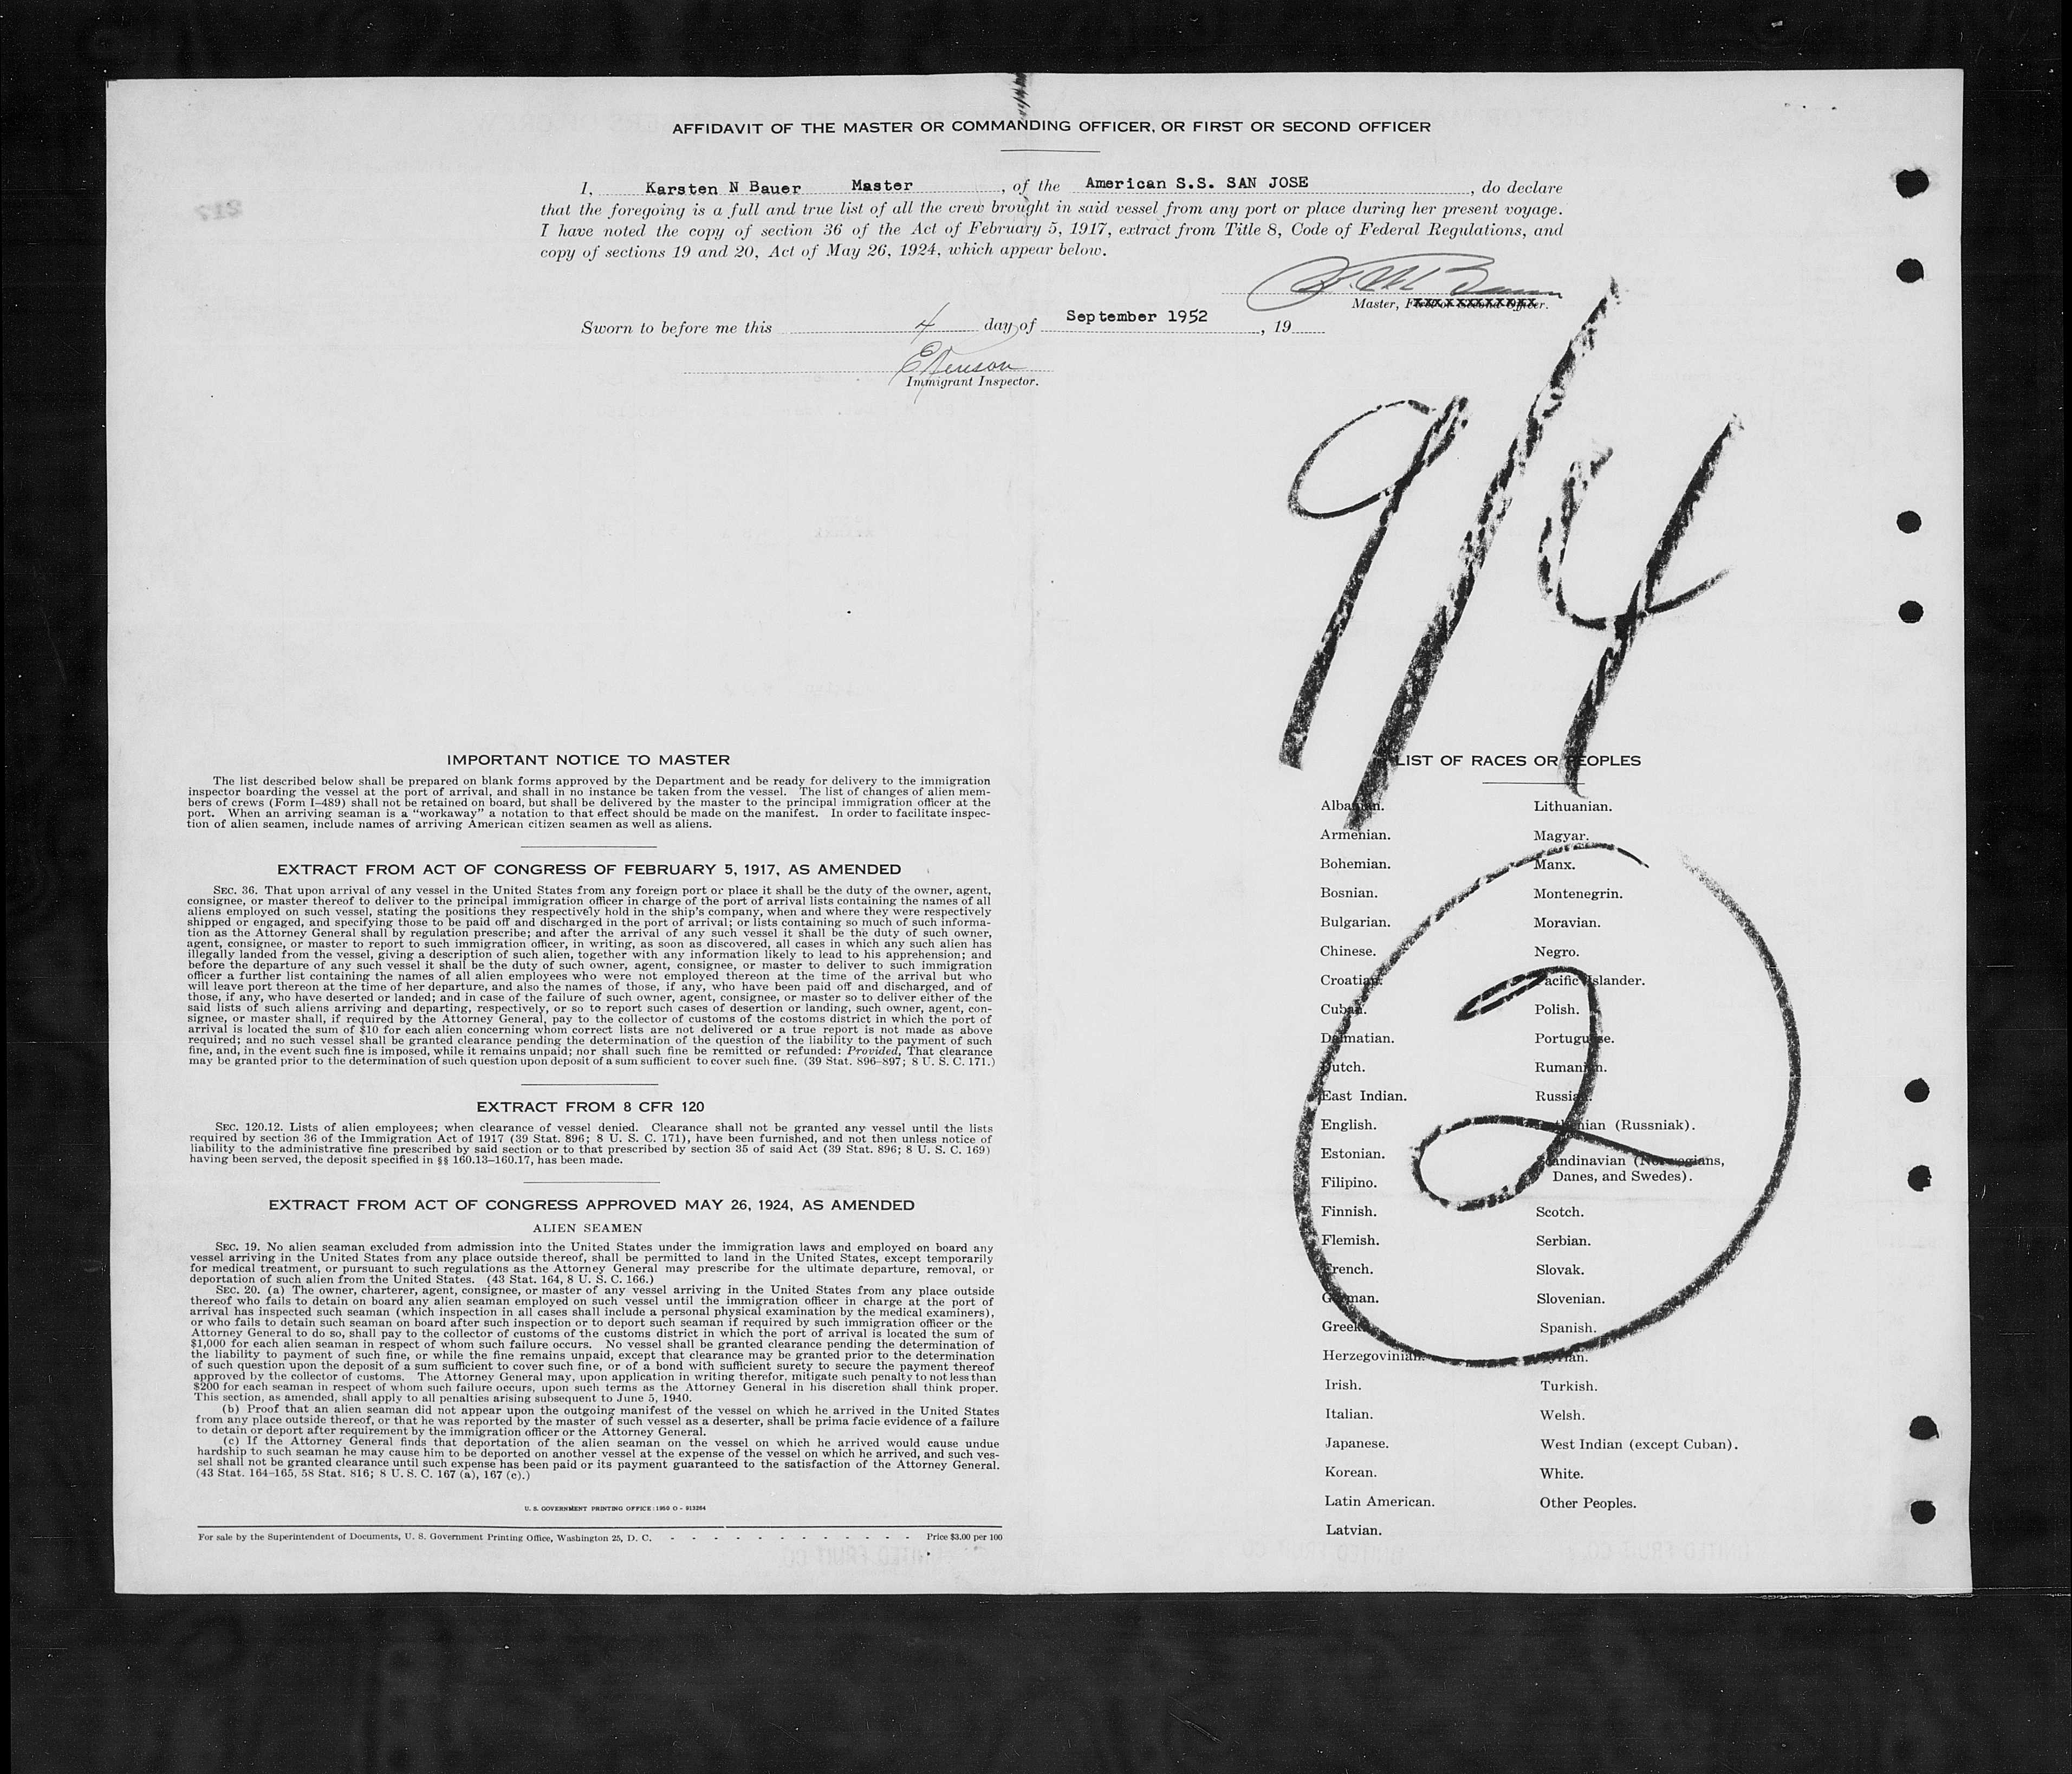 AFFIDAVIT OF THE MASTER OR COMMANDING OFFICER, OR FIRST OR SECOND OFFICER
I, Karsten N Bauer Master, of the American S.S. SAN JOSE, do declare
that the foregoing is a full and true list of all the crew brought in said vessel from any port or place during her present voyage.
I have noted the copy of section 36 of the Act of February 5, 1917, extract from Title 8, Code of Federal Regulations, and
copy of sections 19 and 20, Act of May 26, 1924, which appear below.
Master, First or Second Officer.
Sworn to before me this 4 day of September 1952, 19
Immigrant Inspector.
9/4
2
IMPORTANT NOTICE TO MASTER
The list described below shall be prepared on blank forms approved by the Department and be ready for delivery to the immigration
inspector boarding the vessel at the port of arrival, and shall in no instance be taken from the vessel. The list of changes of alien mem-
bers of crews (Form I-489) shall not be retained on board, but shall be delivered by the master to the principal immigration officer at the
port. When an arriving seaman is a "workaway" a notation to that effect should be made on the manifest. In order to facilitate inspec-
tion of alien seamen, include names of arriving American citizen seamen as well as aliens.
EXTRACT FROM ACT OF CONGRESS OF FEBRUARY 5, 1917, AS AMENDED
SEC. 36. That upon arrival of any vessel in the United States from any foreign port or place it shall be the duty of the owner, agent,
consignee, or master thereof to deliver to the principal immigration officer in charge of the port of arrival lists containing the names of all
aliens employed on such vessel, stating the positions they respectively hold in the ship's company, when and where they were respectively
shipped or engaged, and specifying those to be paid off and discharged in the port of arrival; or lists containing so much of such informa-
tion as the Attorney General shall by regulation prescribe; and after the arrival of any such vessel it shall be the duty of such owner,
agent, consignee, or master to report to such immigration officer, in writing, as soon as discovered, all cases in which any such alien has
illegally landed from the vessel, giving a description of such alien, together with any information likely to lead to his apprehension; and
before the departure of any such vessel it shall be the duty of such owner, agent, consignee, or master to deliver to such immigration
officer a further list containing the names of all alien employees who were not employed thereon at the time of the arrival but who
will leave port thereon at the time of her departure, and also the names of those, if any, who have been paid off and discharged, and of
those, if any, who have deserted or landed; and in case of the failure of such owner, agent, consignee, or master so to deliver either of the
said lists of such aliens arriving and departing, respectively, or so to report such cases of desertion or landing, such owner, agent, con-
signee, or master shall, if required by the Attorney General, pay to the collector of customs of the customs district in which the port of
arrival is located the sum of $10 for each alien concerning whom correct lists are not delivered or a true report is not made as above
required; and no such vessel shall be granted clearance pending the determination of the question of the liability to the payment of such
fine, and, in the event such fine is imposed, while it remains unpaid; nor shall such fine be remitted or refunded: Provided, That clearance
may be granted prior to the determination of such question upon deposit of a sum sufficient to cover such fine. (39 Stat. 896-897; 8 U. S. C. 171.)
EXTRACT FROM 8 CFR 120
SEC. 120.12. Lists of alien employees; when clearance of vessel denied. Clearance shall not be granted any vessel until the lists
required by section 36 of the Immigration Act of 1917 (39 Stat. 896; 8 U. S. C. 171), have been furnished, and not then unless notice of
liability to the administrative fine prescribed by said section or to that prescribed by section 35 of said Act (39 Stat. 896; 8 U. S. C. 169)
having been served, the deposit specified in §§ 160.13-160.17, has been made.
EXTRACT FROM ACT OF CONGRESS APPROVED MAY 26, 1924, AS AMENDED
ALIEN SEAMEN
SEC. 19. No alien seaman excluded from admission into the United States under the immigration laws and employed on board any
vessel arriving in the United States from any place outside thereof, shall be permitted to land in the United States, except temporarily
for medical treatment, or pursuant to such regulations as the Attorney General may prescribe for the ultimate departure, removal, or
deportation of such alien from the United States. (43 Stat. 164, 8 U. S. C. 166.)
SEC. 20. (a) The owner, charterer, agent, consignee, or master of any vessel arriving in the United States from any place outside
thereof who fails to detain on board any alien seaman employed on such vessel until the immigration officer in charge at the port of
arrival has inspected such seaman (which inspection in all cases shall include a personal physical examination by the medical examiners),
or who fails to detain such seaman on board after such inspection or to deport such seaman if required by such immigration officer or the
Attorney General to do so, shall pay to the collector of customs of the customs district in which the port of arrival is located the sum of
$1,000 for each alien seaman in respect of whom such failure occurs. No vessel shall be granted clearance pending the determination of
the liability to payment of such fine, or while the fine remains unpaid, except that clearance may be granted prior to the determination
of such question upon the deposit of a sum sufficient to cover such fine, or of a bond with sufficient surety to secure the payment thereof
approved by the collector of customs. The Attorney General may, upon application in writing therefor, mitigate such penalty to not less than
$200 for each seaman in respect of whom such failure occurs, upon such terms as the Attorney General in his discretion shall think proper.
This section, as amended, shall apply to all penalties arising subsequent to June 5, 1940.
(b) Proof that an alien seaman did not appear upon the outgoing manifest of the vessel on which he arrived in the United States
from any place outside thereof, or that he was reported by the master of such vessel as a deserter, shall be prima facie evidence of a failure
to detain or deport after requirement by the immigration officer or the Attorney General.
(c) If the Attorney General finds that deportation of the alien seaman on the vessel on which he arrived would cause undue
hardship to such seaman he may cause him to be deported on another vessel at the expense of the vessel on which he arrived, and such ves-
sel shall not be granted clearance until such expense has been paid or its payment guaranteed to the satisfaction of the Attorney General.
(43 Stat. 164-165, 58 Stat. 816; 8 U. S. C. 167 (a), 167 (c).)
U. S. GOVERNMENT PRINTING OFFICE: 1950 O - 913264
For sale by the Superintendent of Documents, U. S. Government Printing Office, Washington 25, D. C. - - - - - - - - - - - - Price $3.00 per 100
LIST OF RACES OR PEOPLES
Albanian.
Armenian.
Bohemian.
Bosnian.
Bulgarian.
Chinese.
Croatian.
Cuban.
Dalmatian.
Dutch.
East Indian.
English.
Estonian.
Filipino.
Finnish.
Flemish.
French.
German.
Greek.
Herzegovinian.
Irish.
Italian.
Japanese.
Korean.
Latin American.
Latvian.
Lithuanian.
Magyar.
Manx.
Montenegrin.
Moravian.
Negro.
Pacific Islander.
Polish.
Portuguese.
Rumanian.
Russian.
Ruthenian (Russniak).
Scandinavian (Norwegians,
Danes, and Swedes).
Scotch.
Serbian.
Slovak.
Slovenian.
Spanish.
Syrian.
Turkish.
Welsh.
West Indian (except Cuban).
White.
Other Peoples.